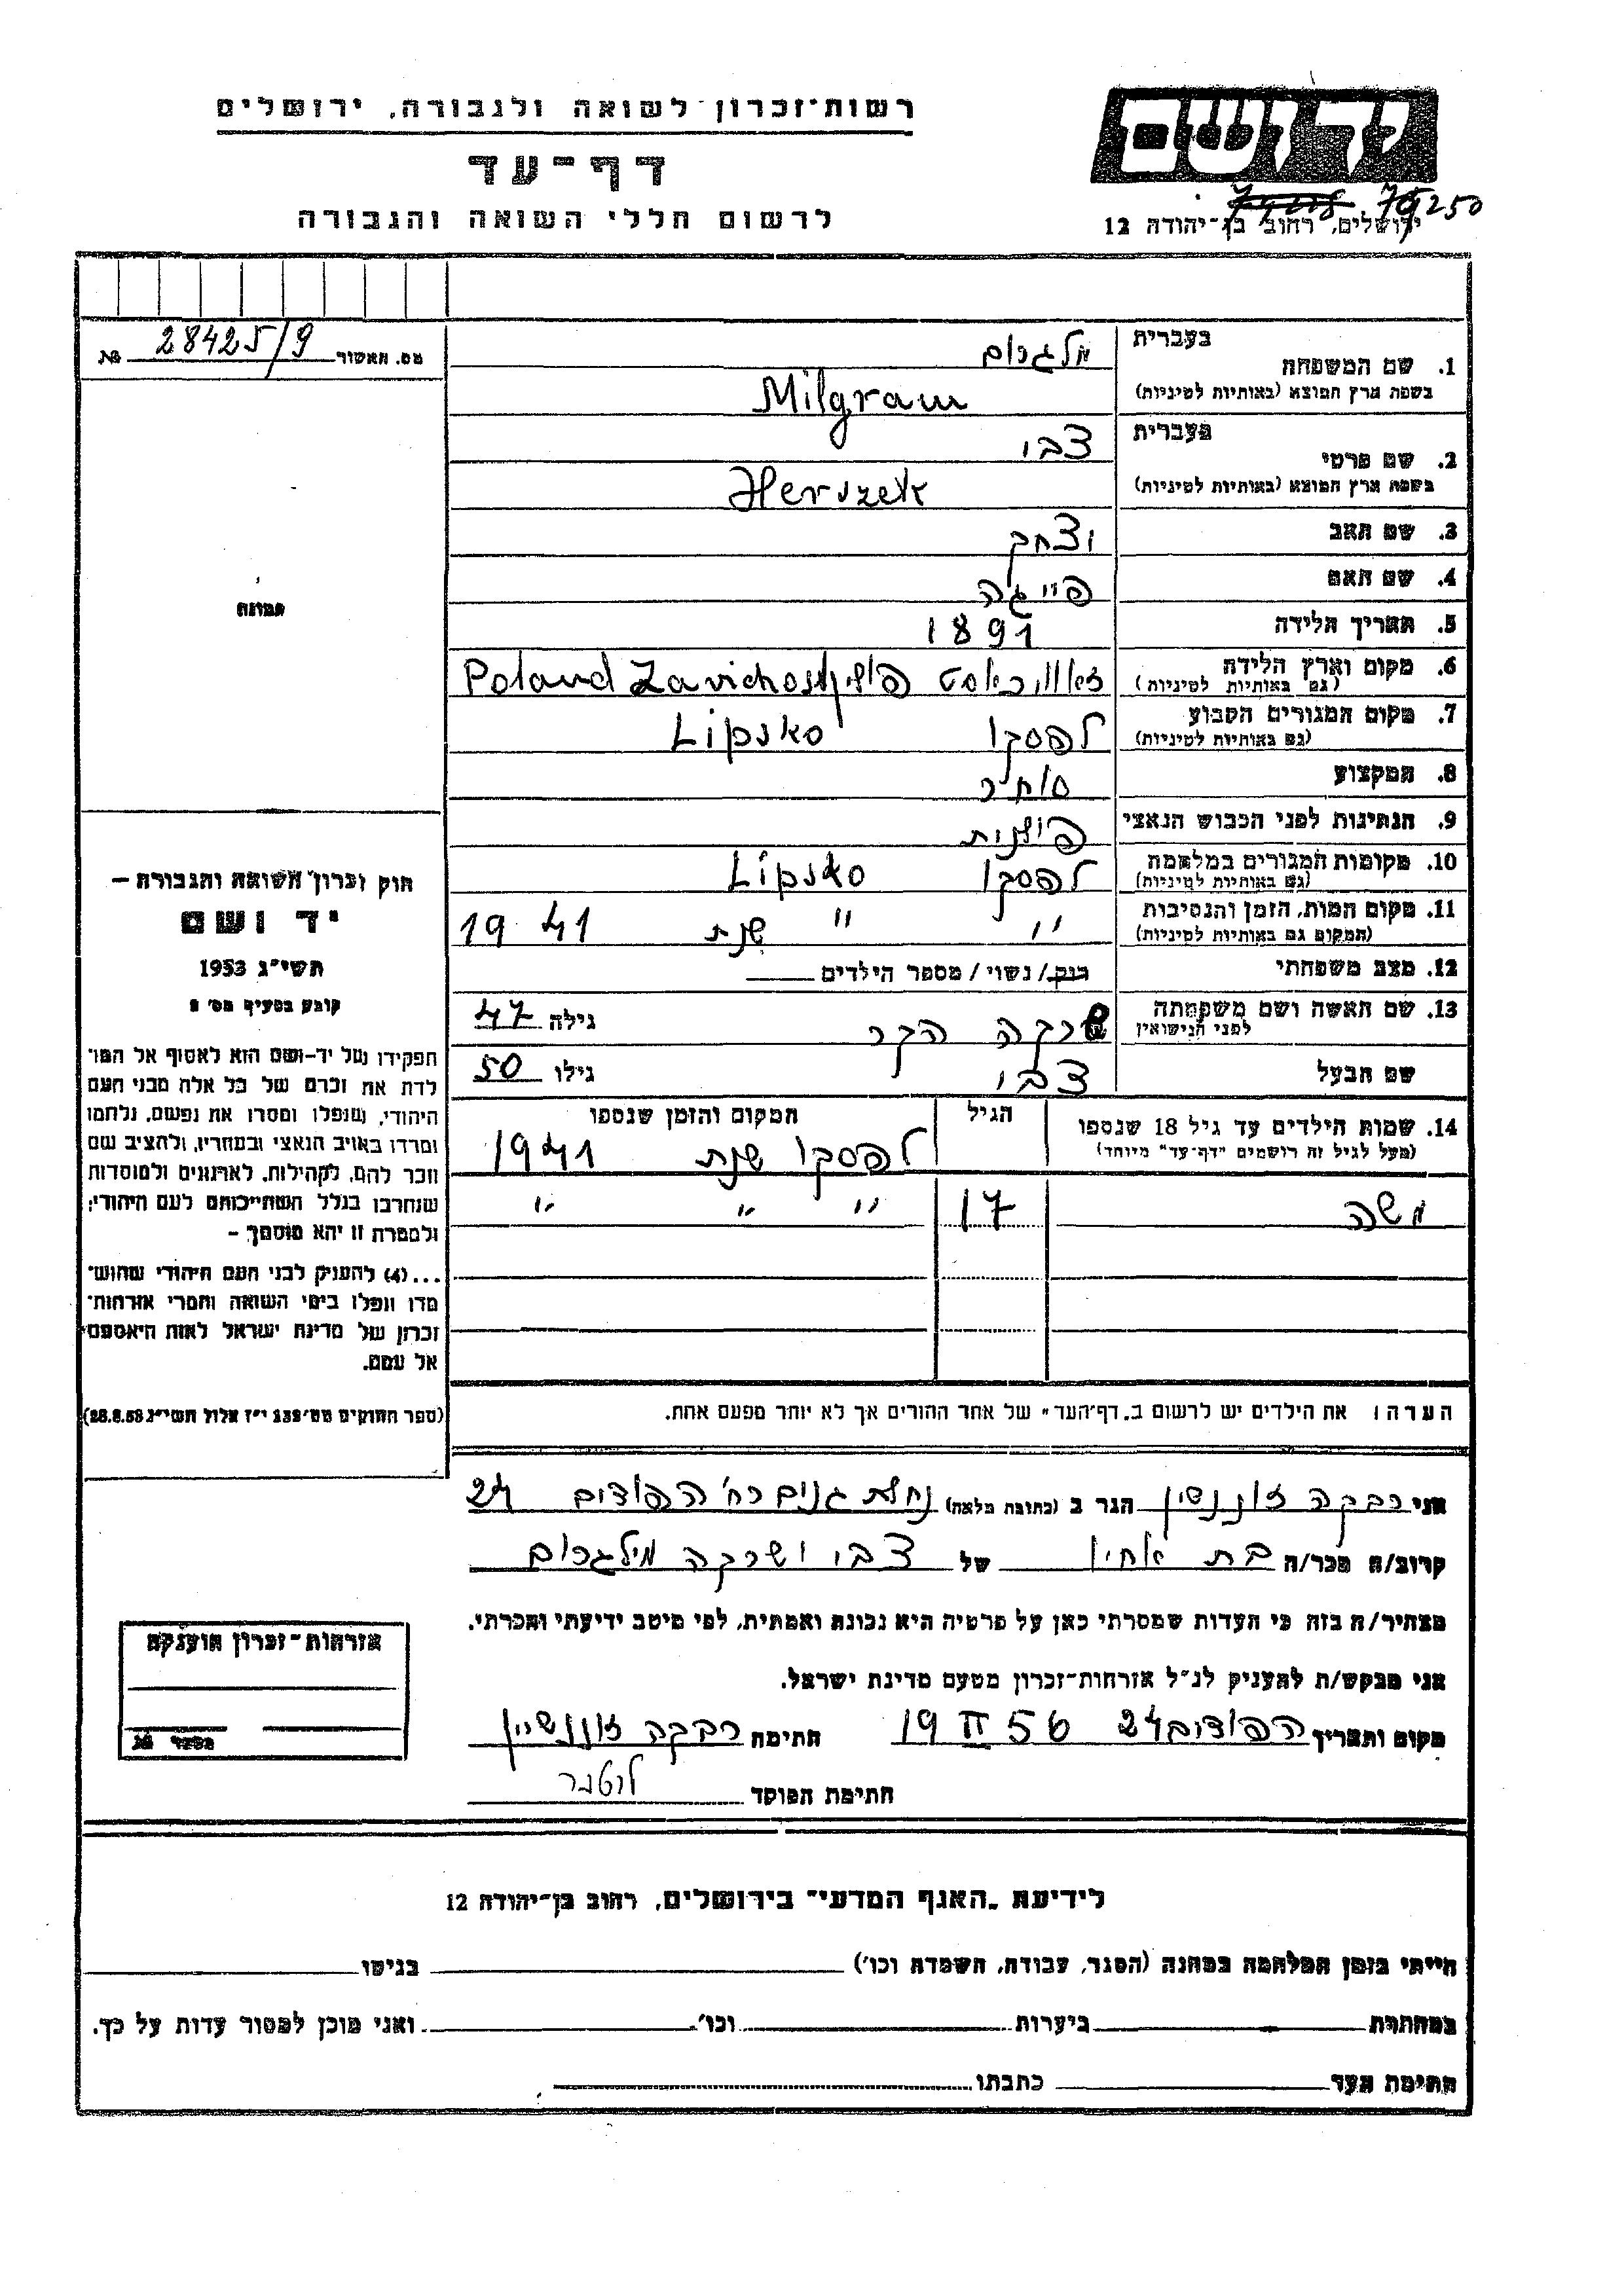 רשות־זכרון לשואה ולגבורה, ירושלים
יד ושם
דף־עד
לרשום חללי השואה והגבורה
75250
ירושלים, רחוב בן־יהודה 12
מס. האשור 28425/9 №
בעברית מלגרום
1. שם המשפחה
בשפת ארץ המוצא (באותיות לטיניות) Milgram
בעברית צבי
2. שם פרטי
בשפת ארץ המוצא (באותיות לטיניות) Herszek
3. שם האב יצחק
4. שם האם פייגה
5. תאריך הלידה 1891
6. מקום וארץ הלידה Poland Zavichost
(גם באותיות לטיניות)
7. מקום המגורים הקבוע ליפסקו Lipsko
(גם באותיות לטיניות)
8. המקצוע סוחר
9. הנתינות לפני הכבוש הנאצי פולנית
10. מקומות המגורים במלחמה ליפסקו Lipsko
(גם באותיות לטיניות)
11. מקום המות, הזמן והנסיבות " " שנת 1941
(המקום גם באותיות לטיניות)
12. מצב משפחתי רוק / נשוי / מספר הילדים
13. שם האשה ושם משפחתה לפני הנישואין שרקה הקר גילה 47
שם הבעל צבי גילו 50
14. שמות הילדים עד גיל 18 שנספו הגיל המקום והזמן שנספו
(מעל לגיל זה רושמים "דף־עד" מיוחד) ליפסקו שנת 1941
משה 17 " " "
הערה: את הילדים יש לרשום ב„דף־העד" של אחד ההורים אך לא יותר מפעם אחת.
תמונה
חוק זכרון השואה והגבורה –
יד ושם
תשי"ג 1953
קובע בסעיף מס' 2
תפקידו של יד-ושם הוא לאסוף אל המו־
לדת את זכרם של כל אלה מבני העם
היהודי, שנפלו ומסרו את נפשם, נלחמו
ומרדו באויב הנאצי ובעוזריו, ולהציב שם
וזכר להם, לקהילות, לארגונים ולמוסדות
שנחרבו בגלל השתייכותם לעם היהודי;
ולמטרה זו יהא מוסמך –
...(4) להעניק לבני העם היהודי שהוש־
מדו ונפלו בימי השואה והמרי אזרחות־
זכרון של מדינת ישראל לאות היאספם
אל עמם.
(ספר החוקים מס' 132 י"ז אלול תשי"ג 28.8.53)
אני רבקה זוננשיין הגר ב (כתובת מלאה) נחלת גנים רח' הפודים 24
קרוב/ה מכר/ה בת אחין של צבי ושרקה מילגרום
מצהיר/ה בזה כי העדות שמסרתי כאן על פרטיה היא נכונה ואמתית, לפי מיטב ידיעתי והכרתי.
אני מבקש/ת להעניק לנ"ל אזרחות־זכרון מטעם מדינת ישראל.
מקום ותאריך הפודים 24 19 II 56 חתימה רבקה זוננשיין
חתימת הפוקד
אזרחות־זכרון הוענקה
מספר №
לידיעת „האגף המדעי" בירושלים, רחוב בן־יהודה 12
הייתי בזמן המלחמה במחנה (הסגר, עבודה, השמדה וכו') בגיטו
במחתרת ביערות וכו' ואני מוכן למסור עדות על כך.
חתימת העד כתבתו